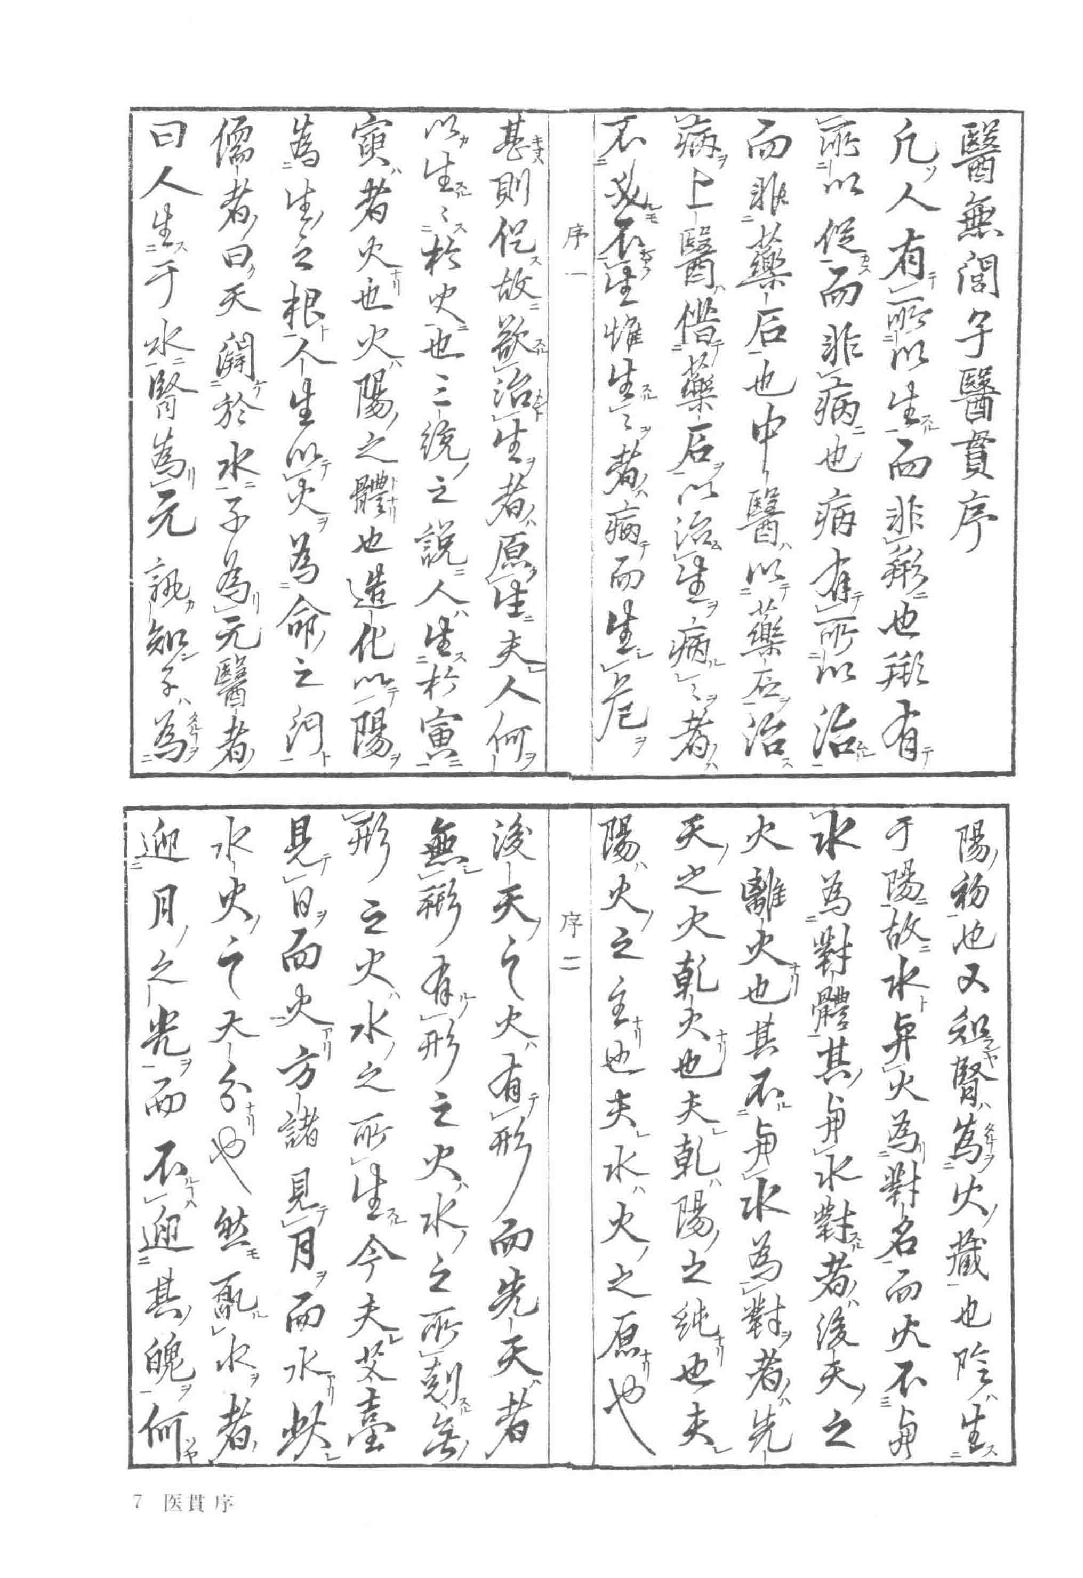 醫無閭子醫貫序
凡人有所以生而非形也形有
所以促而非病也病有所以治
而非藥石也中醫以藥石治
病上醫借藥石以治生病病者
不必不生惟生生者病而生危
序一
甚則促故欲治生者原生夫人何
以生生於火也三統之說人生於寅
寅者火也火陽之體也造化以陽
為生之根人生以火為命之門
儒者曰天闢於水子為元醫者
曰人生于水腎為元孰知子為
陽初也又知腎為火藏也陰生
于陽故水與火為對名而火不與
水為對體其與水對者後天之
火離火也其不與水為對者先
天之火乾火也夫乾陽之純也夫
陽火之主也夫水火之原也
序二
後天之火有形而先天者
無形有形之火水之所剋無
形之火水之所生今夫艾臺
見日而火方諸見月而水
水火之大分也然取水者
迎月之光而不迎其魄何
7 医貫序